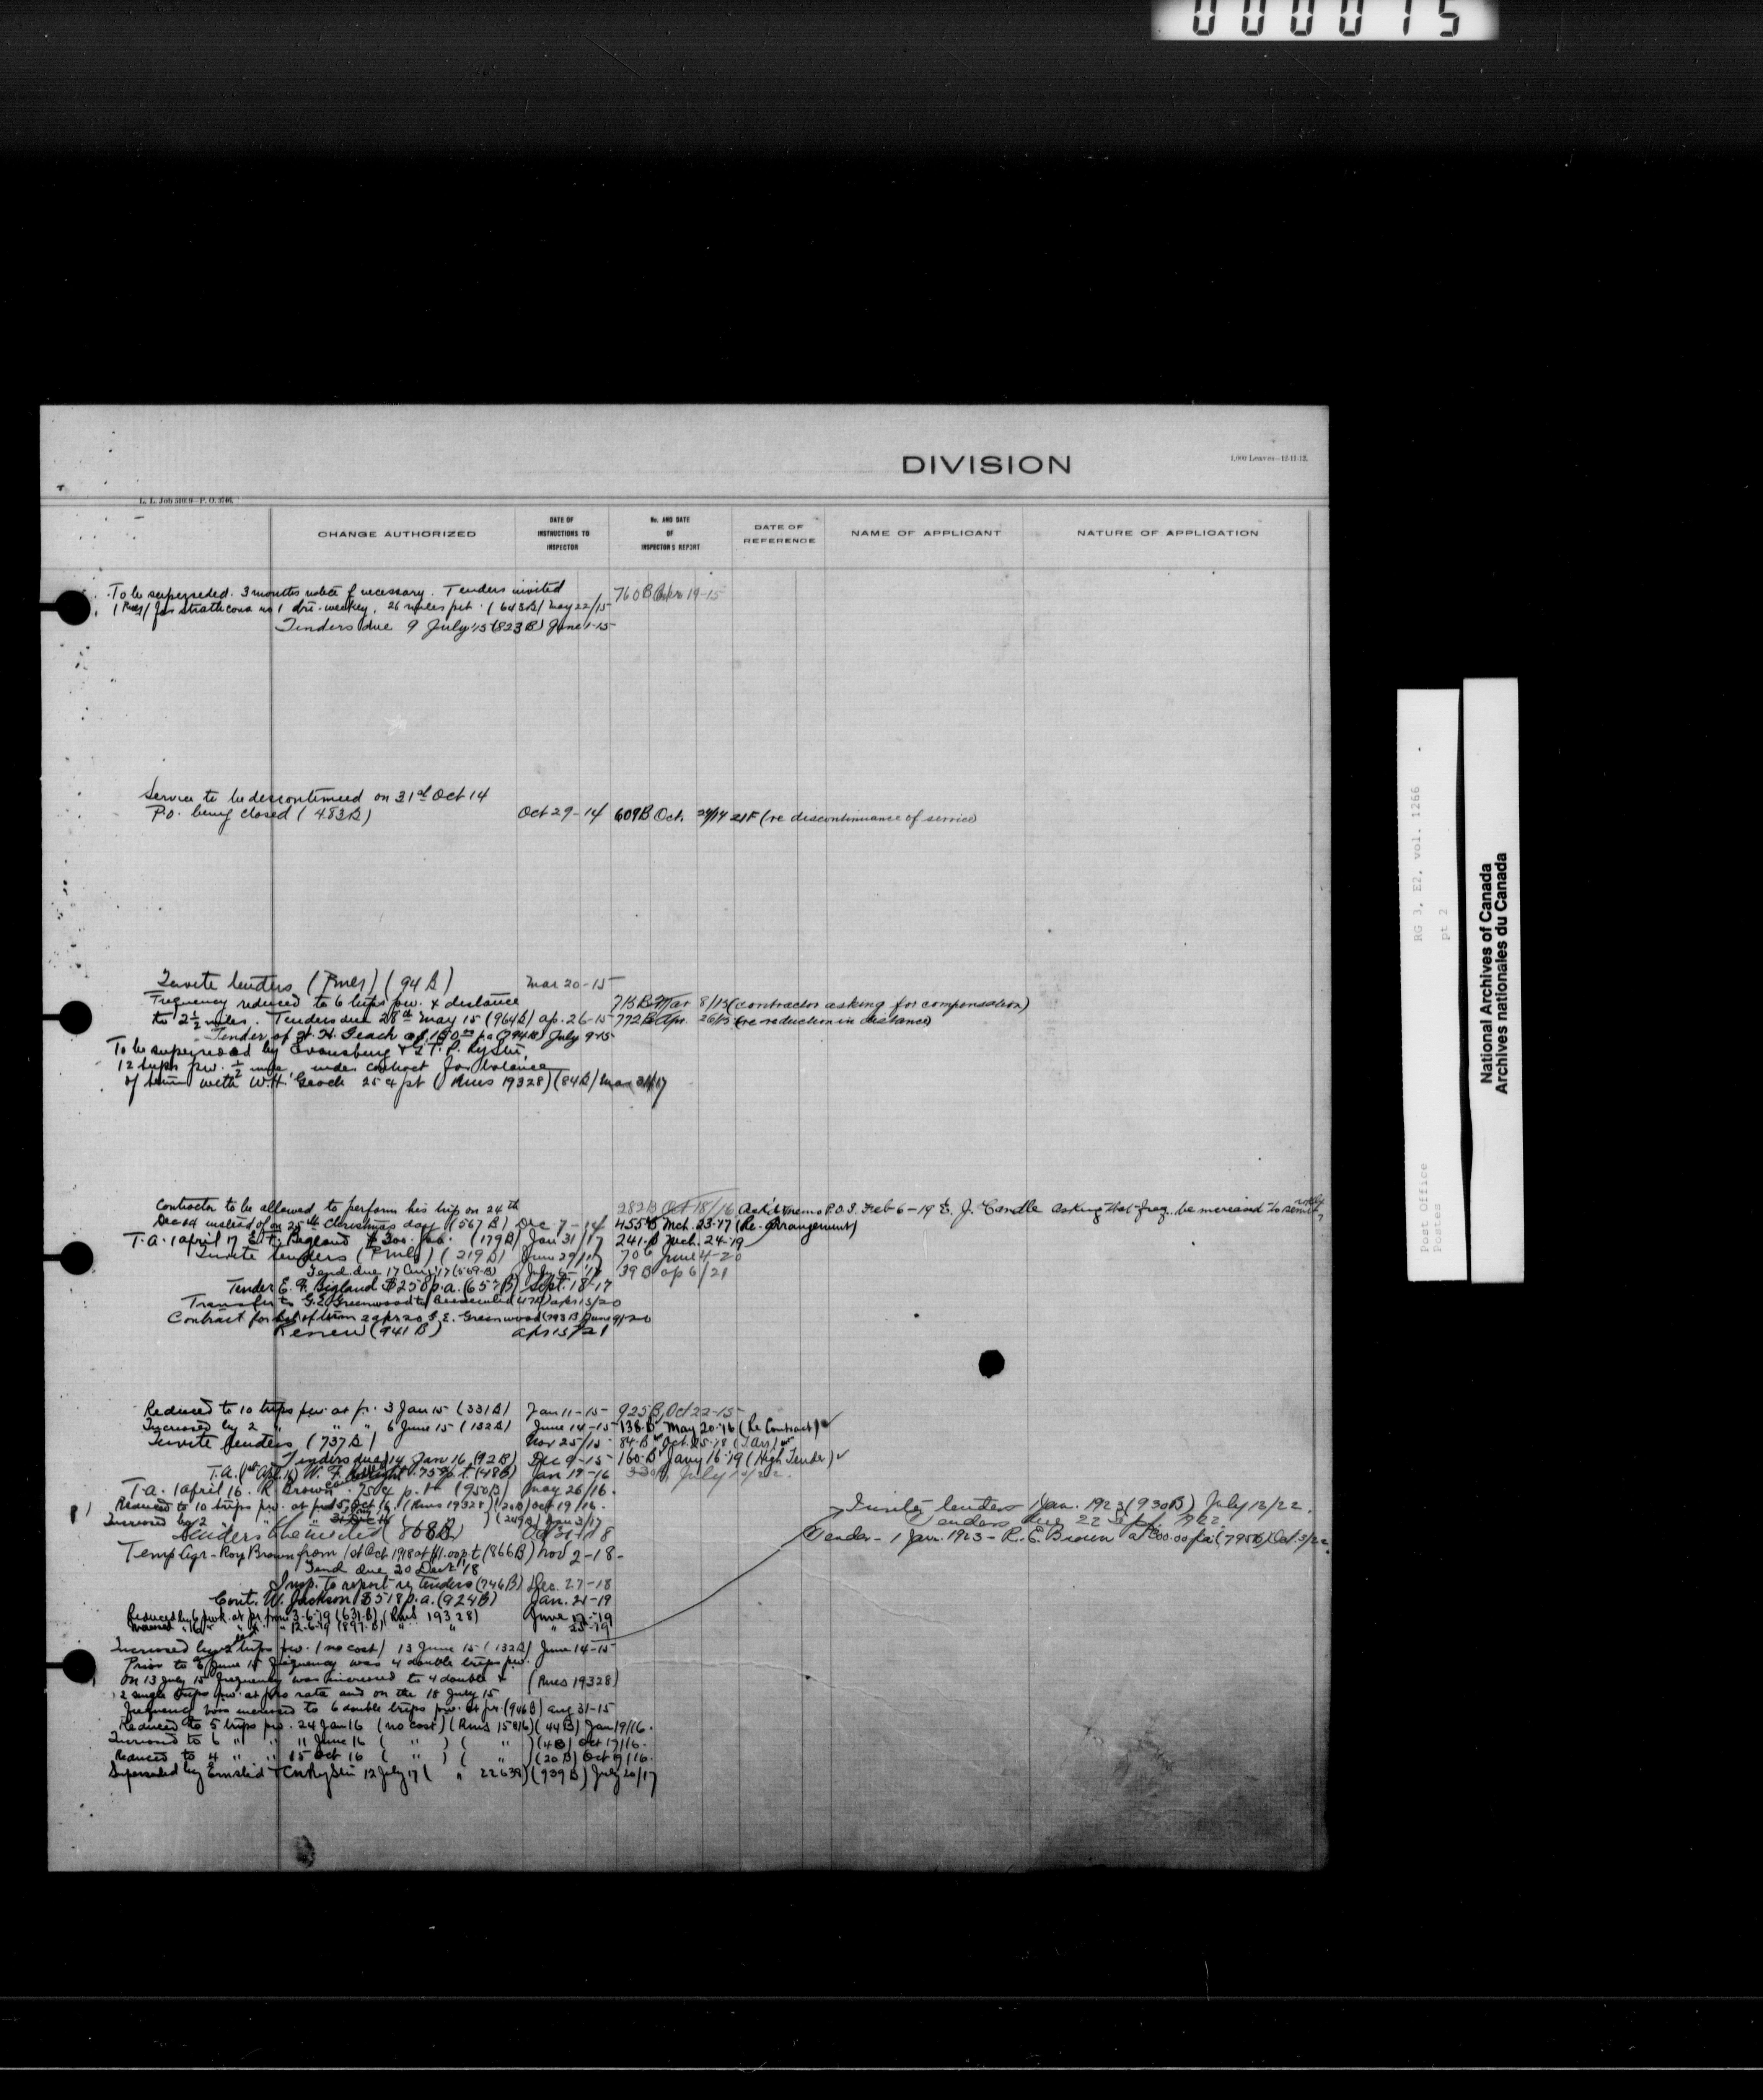 000015
DIVISION
1,000 Leaves—12-11-12.
L. L. Job 51019—P. O. 3746.
CHANGE AUTHORIZED
DATE OF INSTRUCTIONS TO INSPECTOR
No. AND DATE OF INSPECTOR'S REPORT
DATE OF REFERENCE
NAME OF APPLICANT
NATURE OF APPLICATION
To be superseded. 3 months notice if necessary. Tenders invited 760B 19-15
for Strathcona no 1 tri-weekly, 26 miles pet. (643B) May 22/15
Tenders due 9 July '15 (823B) June 1-15
Service to be discontinued on 31st Oct 14
P.O. being closed (483B) Oct 29-14 609B Oct. 24/14 21F (re discontinuance of service)
Invite tenders (Rmes) (94B) Mar 20-15
Frequency reduced to 6 trips pw. & distance 715B Mar 8/15 (contractor asking for compensation)
to 2½ miles. Tenders due 28th May 15 (964B) ap. 26-15 772B Apr. 26/15 (re reduction in distance)
Tender of W. H. Geach at 150.00 p.a. (794B) July 9-15
To be superseded by Evansburg & G.T.P. Ry Stn,
12 trips pw. ½ mile, under contract for balance
of term with W.H. Geach 25¢ pt (Rmes 19328) (84B) Mar 31/17
Contractor to be allowed to perform his trip on 24th 282B Oct 18/16 Ask'd memo P.O.I. Feb 6-19 E. J. Candle asking that freq. be increased to semi-wkly
Dec 14 instead of on 25th Christmas day (567B) Dec 7-14 455B Mch. 23-17 (Re-Arrangement)
T.A. 1 April 17 E. F. Bigland $300. p.a. (179B) Jan 31/17 241-B Mch. 24-19
Invite tenders (Rmes) (219B) June 29/17 706 June 4-20
Tend. due 17 Aug '17 (569-B) July 6-17 39B ap 6/21
Tender E. F. Bigland $250 p.a. (657B) Sept. 18-17
Transfer to G.E. Greenwood to be executed (47B) apr 13/20
Contract for bal of term 2 apr 20 G. E. Greenwood (793B) June 9/20
Renew (941B) apr 15/21
Reduced to 10 trips pw. at pr. 3 Jan 15 (331B) Jan 11-15 925B, Oct 22-15
Increased by 2 " " " 6 June 15 (132B) June 14-15 138-B May 20-'16 (Re Contract)
Invite tenders (737B) Nov 25/15 84-B Oct. 25-18
Tenders due 14 Jan 16 (92B) Dec 9-15 160-B Jany 16-'19 (High Tender)
T.A. (1st Apl. 16) W. F. 75¢ p.t. (48B) Jan 19-16 330B July 10/22.
T.A. 1 April 16. R. Brown 75¢ p.t. (950B) May 26/16.
Reduced to 10 trips pw. at pr. 15 Oct 16. (Rmes 19328) (20B) Oct 19/16.
Increased by 2 " " (249B) Jan 3/17
Tenders to be invited (808B) Oct 31-18
Temp Agr - Roy Brown from 1st Oct. 1918 at $1.00 p.t (866B) Nov 2-18-
Tend due 20 Dec '18
Insp. to report re tenders (746B) Dec. 27-18
Cont. W. Jackson $518 p.a. (924B) Jan. 21-19
Reduced by 6 p.wk. at pr from 3-6-19 (631-B) (Rmes 19328) June 12-19
Increased " 12-6-19 (897-B) " " " 25-19
Increased by 2 trips pw. (no cost) 13 June 15 (132B) June 14-15
Prior to 6 June 15 frequency was 4 double trips pw.
on 13 July 15 frequency was increased to 4 double & (Rmes 19328)
2 single trips pw. at pro rata and on the 18 July 15
frequency was increased to 6 double trips pw. at pr. (946B) Aug 31-15
Reduced to 5 trips pw. 24 Jan 16 (no cost) (Rmes 15816) (44B) Jan 19/16.
Increased to 6 " " 11 June 16 ( " ) ( " ) (4B) Oct 17/16.
Reduced to 4 " " 15 Oct 16 ( " ) ( " ) (20B) Oct 19/16.
Superseded by & CN Ry Stn 12 July 17 ( " 22639) (939B) July 20/17
Invite tenders 1 Jan. 1923 (930B) July 13/22.
Tenders due 22 Sept. 1922.
Tender - 1 Jan. 1923 - R. E. Brown at $300.00 p.a. (795B) Oct. 3/22.
RG 3, E2, vol. 1266
pt 2
Post Office
Postes
National Archives of Canada
Archives nationales du Canada